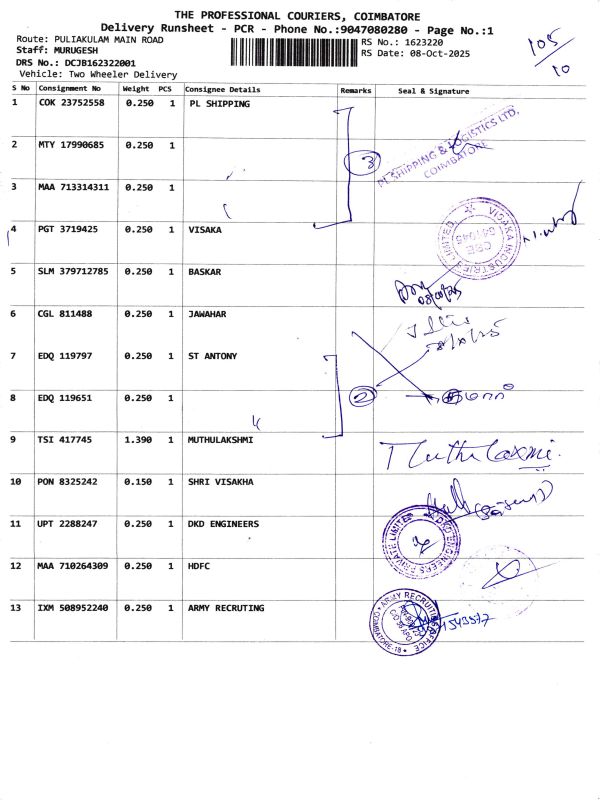 THE PROFESSIONAL COURIERS, COIMBATORE
Delivery Runsheet - PCR - Phone No.:9047080280 - Page No.:1
Route: PULIAKULAM MAIN ROAD
RS No.: 1623220
105/10
Staff: MURUGESH
RS Date: 08-Oct-2025
DRS No.: DCJB162322001
Vehicle: Two Wheeler Delivery
S No Consignment No Weight PCS Consignee Details Remarks Seal & Signature
1 COK 23752558 0.250 1 PL SHIPPING
PL SHIPPING & LOGISTICS LTD,
COIMBATORE
2 MTY 17990685 0.250 1
3
3 MAA 713314311 0.250 1
4 PGT 3719425 0.250 1 VISAKA
VISAKA INDUSTRIES LIMITED
CBE
641045
5 SLM 379712785 0.250 1 BASKAR
6 CGL 811488 0.250 1 JAWAHAR
7 EDQ 119797 0.250 1 ST ANTONY
8 EDQ 119651 0.250 1
2
9 TSI 417745 1.390 1 MUTHULAKSHMI
Muthulaxmi.
10 PON 8325242 0.150 1 SHRI VISAKHA
11 UPT 2288247 0.250 1 DKD ENGINEERS
DKD ENGINEERS PRIVATE LIMITED
12 MAA 710264309 0.250 1 HDFC
13 IXM 508952240 0.250 1 ARMY RECRUTING
ARMY RECRUITING OFFICE
COIMBATORE-18